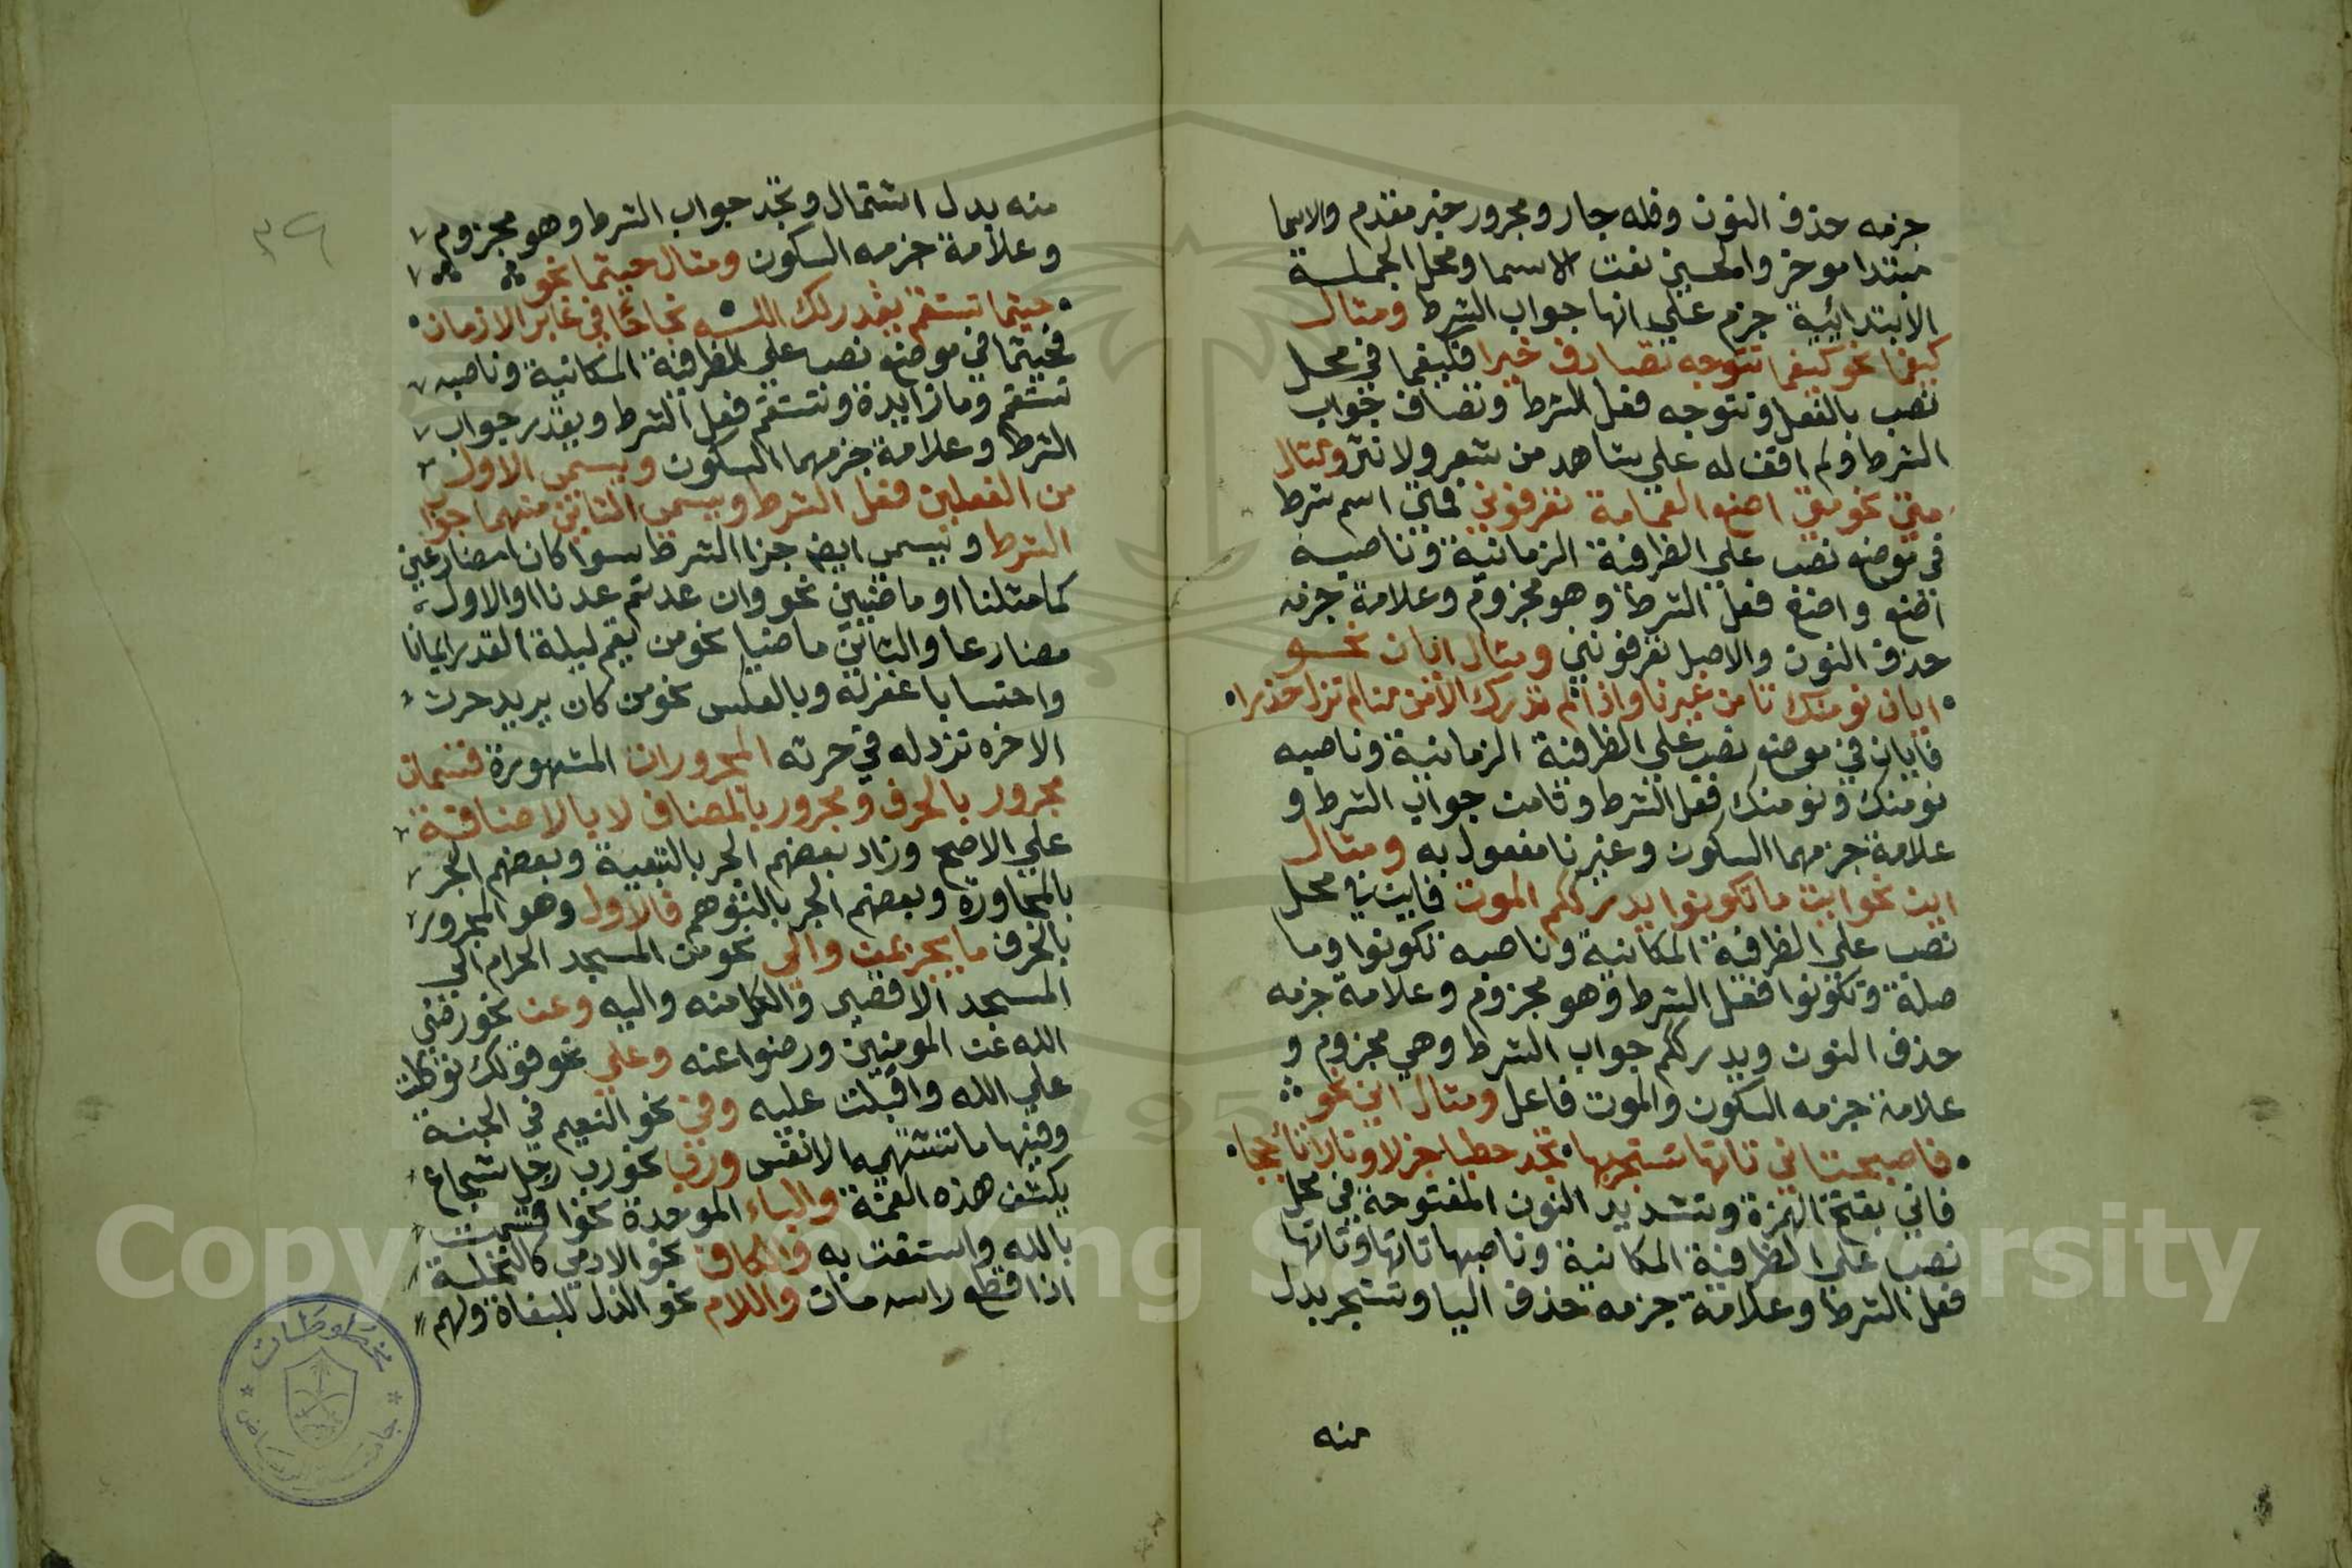 جزمه حذف النون وفله جار ومجرور خبر مقدم والاسما
مبتدا موخر والحسني نعت الاسما ومحل الجملة
الابتدائية جزم علي انها جواب الشرط ومثال
كيفما نحو كيفما تتوجه تصادف خيرا فكيفما في محل
نصب بالفعل وتتوجه فعل الشرط وتصاف جواب
الشرط ولم اقف له علي شاهد من شعر ولا نثر ومثال
متي نحو متي اضع العمامة تعرفوني فمتي اسم شرط
في موضع نصب علي الظرفية الزمانية وناصبه
اضع واضع فعل الشرط وهو مجزوم وعلامة جزمه
حذف النون والاصل تعرفونني ومثال ايان نحو
ايان نومنك تامن غيرنا واذا لم تدرك الامن منا لم تزل حذرا
فايان في موضع نصب علي الظرفية الزمانية وناصبه
نومنك ونومنك فعل الشرط وتامن جواب الشرط و
علامة جزمهما السكون وغيرنا مفعول به ومثال
اين نحو اين ما تكونوا يدرككم الموت فاين في محل
نصب علي الظرفية المكانية وناصبه تكونوا وما
صلة وتكونوا فعل الشرط وهو مجزوم وعلامة جزمه
حذف النون ويدرككم جواب الشرط وهي مجزوم و
علامة جزمه السكون والموت فاعل ومثال اني نحو
فاصبحت اني تاتها تستجر بها تجد حطبا جزلا ونارا تاججا
فاني بفتح الهمزة وتشديد النون المفتوحة في محل
نصب علي الظرفية المكانية وناصبها تاتها وتاتها
فعل الشرط وعلامة جزمه حذف اليا وتستجر بدل
منه
٣٩
منه بدل اشتمال وتجد جواب الشرط وهو مجزوم
وعلامة جزمه السكون ومثال حيثما نحو
حيثما تستقم يقدر لك الله نجاحا في غابر الازمان
فحيثما في موضع نصب علي الظرفية المكانية وناصبه
تستقم وما زايدة وتستقم فعل الشرط ويقدر جواب
الشرط وعلامة جزمهما السكون ويسمي الاول
من الفعلين فعل الشرط ويسمي الثاني منهما جواب
الشرط ويسمي ايضا جزا الشرط سوا كان امضارعين
كما مثلنا او ماضيين نحو وان عدتم عدنا او الاول
مضارعا والثاني ماضيا نحو من يقم ليلة القدر ايمانا
واحتسابا غفر له وبالعكس نحو من كان يريد حرث
الاخرة نزد له في حرثه المجرورات المشهورة قسمان
مجرور بالحرف ومجرور بالمضاف لا بالاضافة
علي الاصح وزاد بعضهم الجر بالتبعية وبعضهم الجر
بالمجاورة وبعضهم الجر بالتوهم فالاول وهو المجرور
بالحرف ما يجر بمن والي نحو من المسجد الحرام الي
المسجد الاقصي والكل منه واليه وعن نحو رضي
الله عن المومنين ورضوا عنه وعلي نحو قولك توكلت
علي الله واقبلت عليه وفي نحو النعيم في الجنة
وفيها ما تشتهيه الانفس ورب نحو رب رجل شجاع
يكشف هذه الغمة والباء الموحدة نحو اقسمت
بالله واستعنت به والكاف نحو الادمي كالنخلة
اذا قطع راسه مات واللام نحو الذل للبغاة ولهم
مخطوطات
جامعة الرياض
Copyright © King Saud University
195